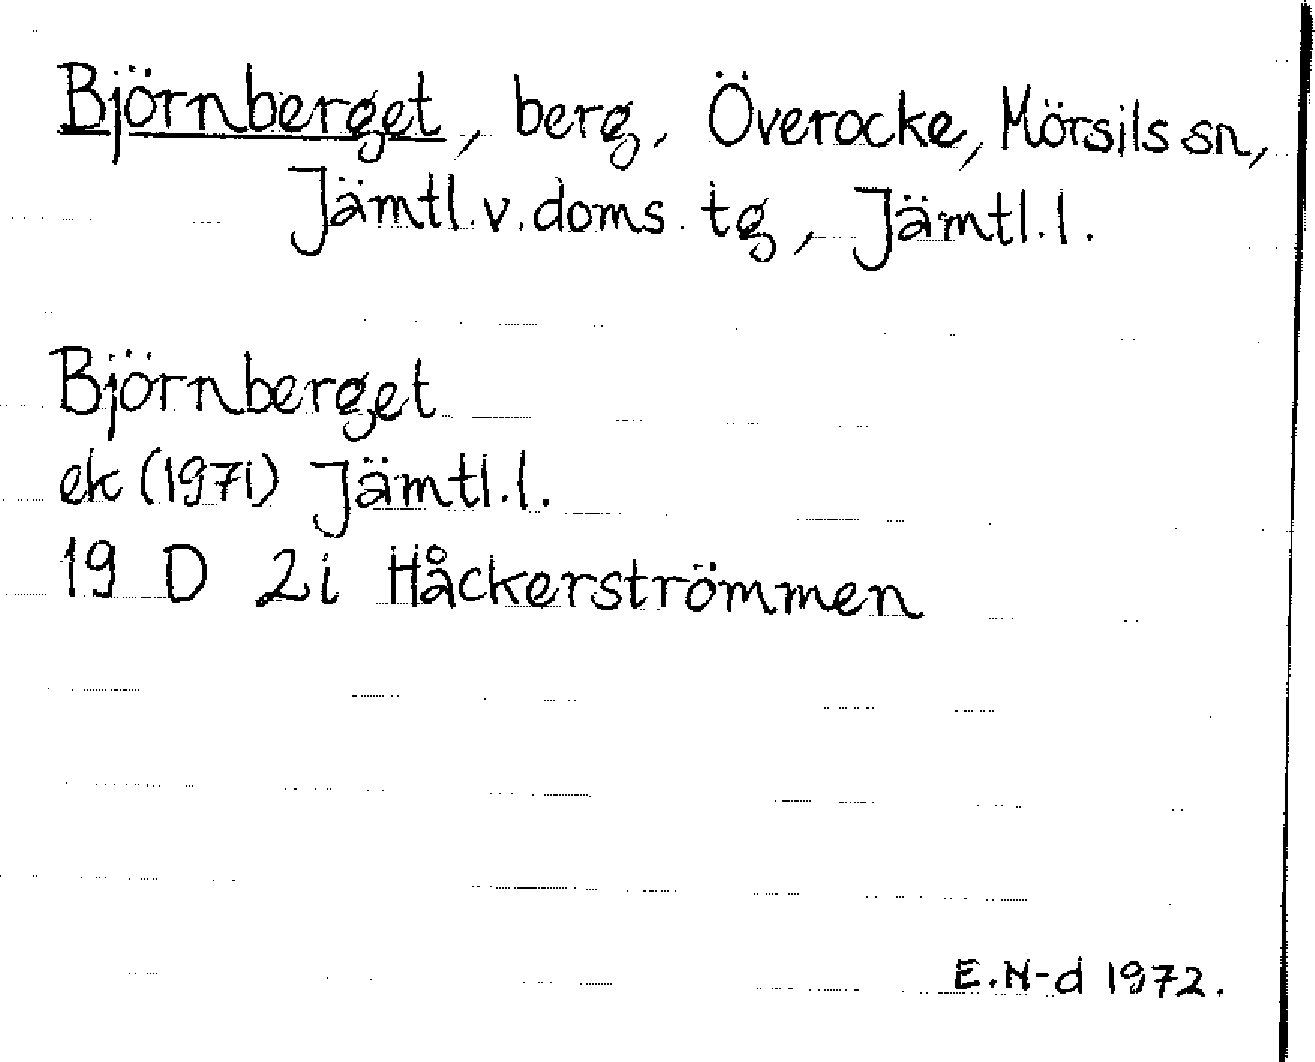 Björnberget, berg, Överocke, Mörsils sn,
Jämtl. v. doms. tg, Jämtl. l.
Björnberget
ek (1971) Jämtl. l.
19 D 2i Håckerströmmen
E.N-d 1972.